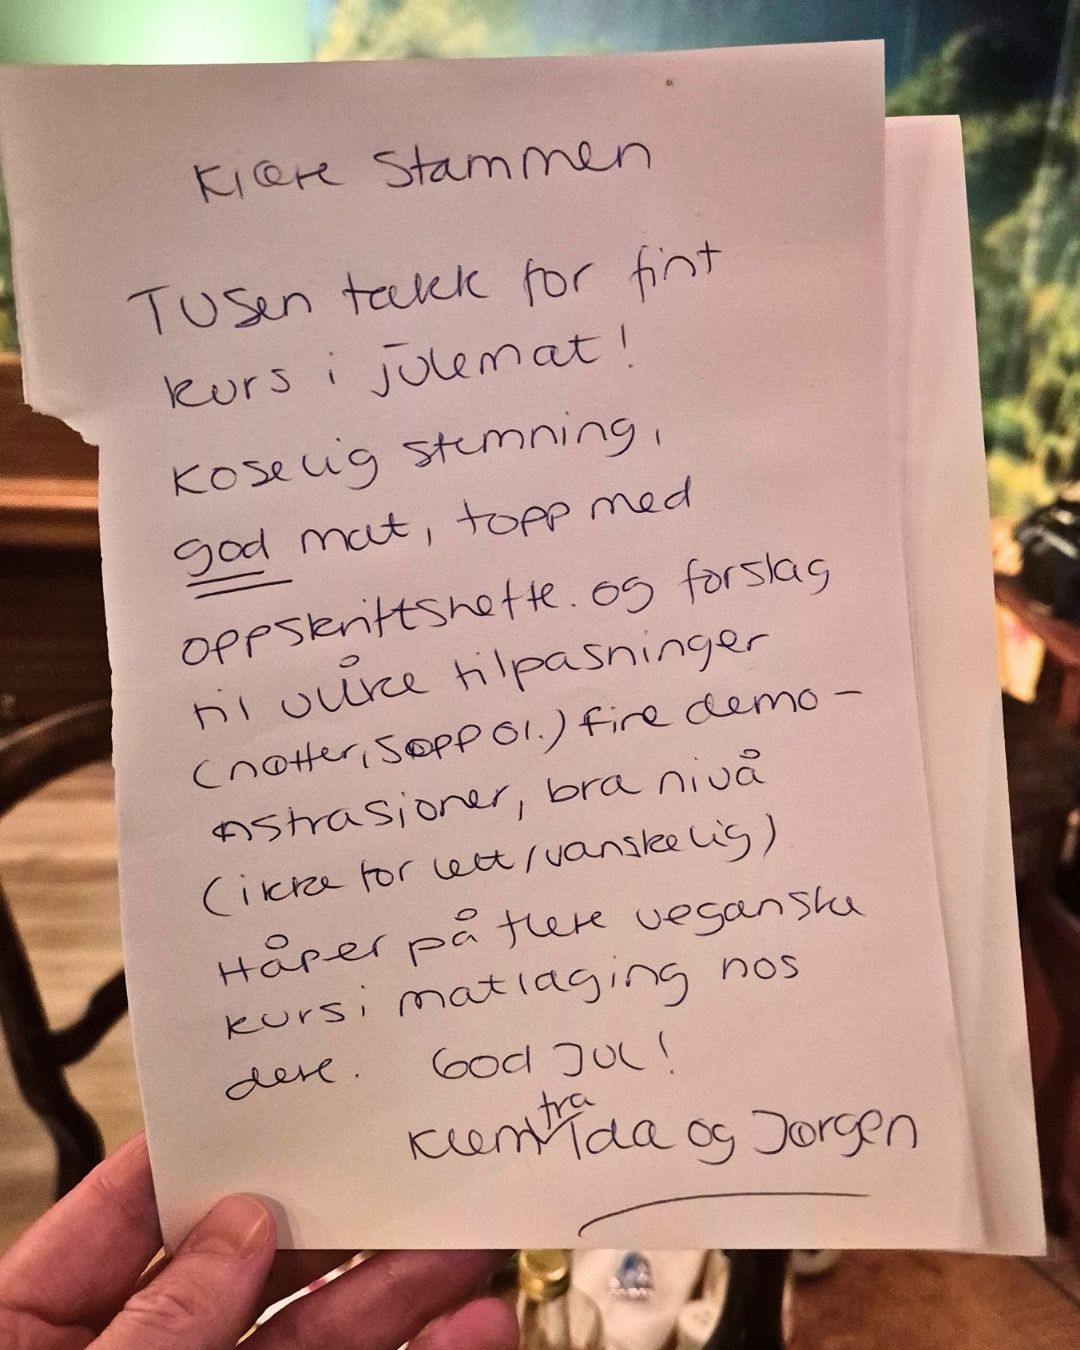 Kjære Stammen
Tusen takk for fint
kurs i julemat!
Koselig stemning,
god mat, topp med
oppskriftshefte. og forslag
til ulike tilpasninger
(nøtter, sopp ol.) fine demo-
nstrasjoner, bra nivå
(ikke for lett/vanskelig)
Håper på flere veganske
kurs i matlaging hos
dere. God Jul!
fra
Klem Ida og Jørgen